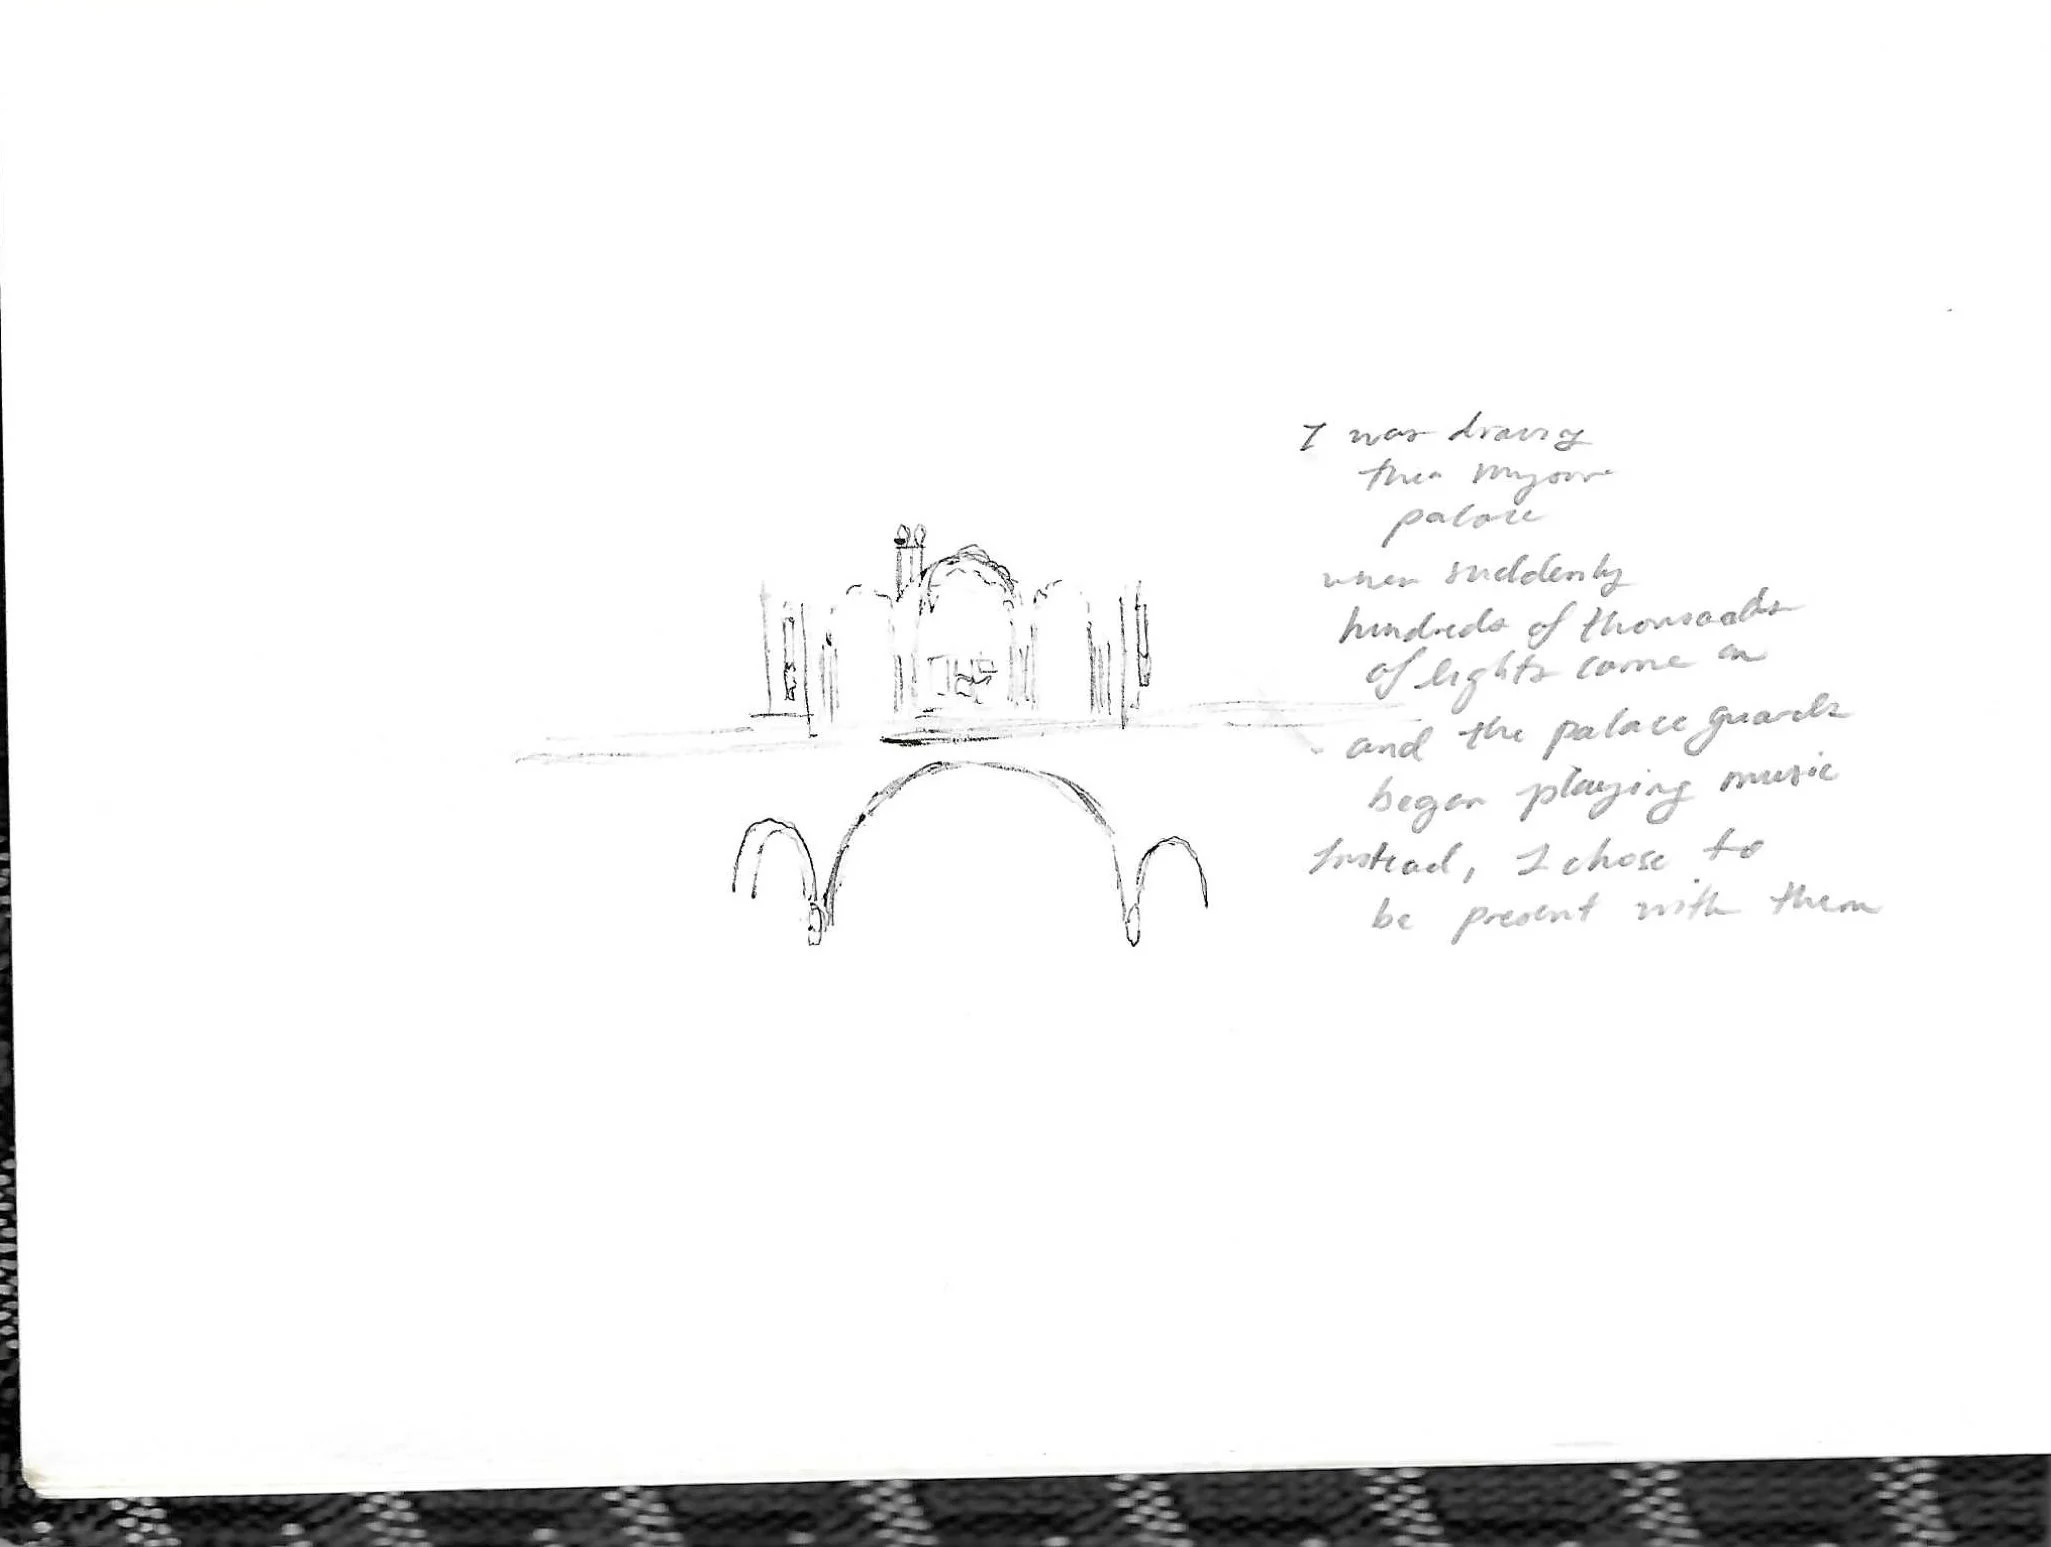 I was drawing
the Mysore
palace
when suddenly
hundreds of thousands
of lights came on
and the palace guards
began playing music
Instead, I chose to
be present with them